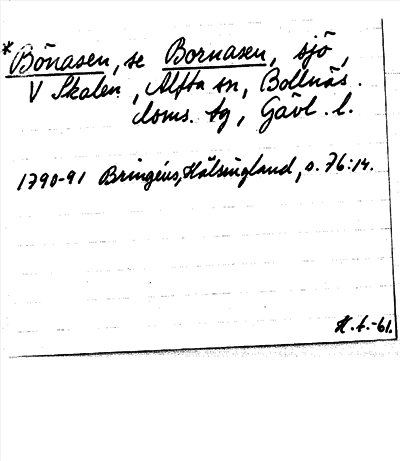 *Bönasen, se Bornasen, sjö,
V Skalen, Alfta sn, Bollnäs.
doms. tg, Gävl. l.
1790-91 Bringéus, Hälsingland, s. 76:14.
H. f.-61.